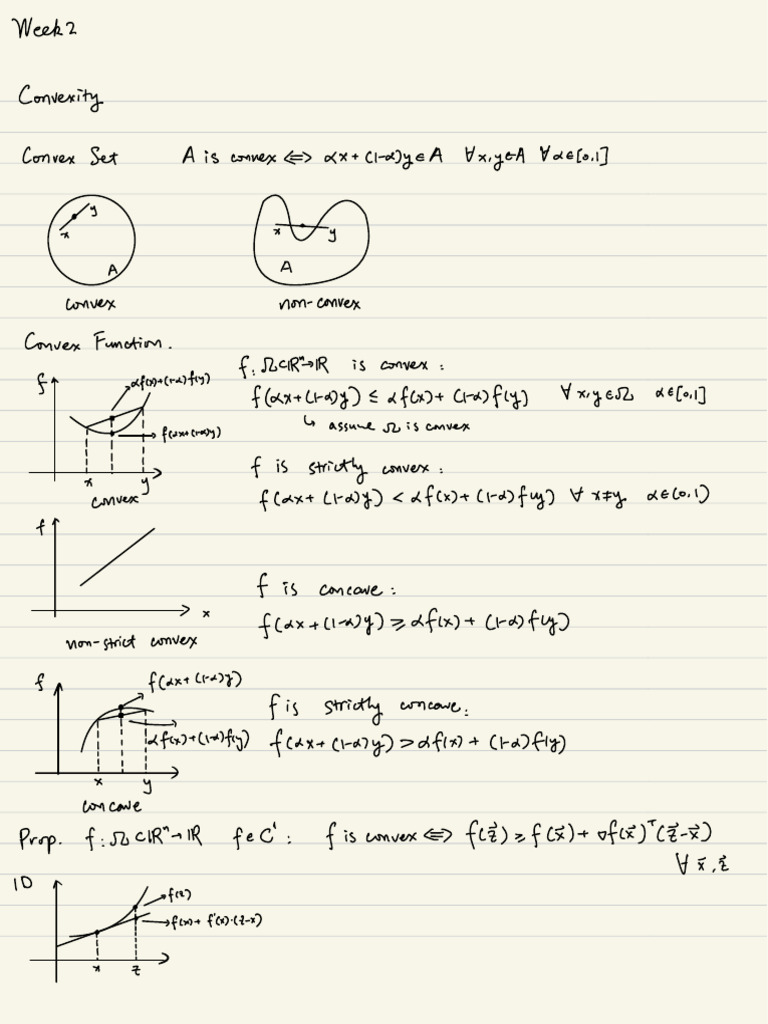 Week 2
Convexity
Convex Set A is convex ⟺ αx + (1-α)y ∈ A ∀ x, y ∈ A ∀ α ∈ [0,1]
x y A
convex
x y A
non-convex
Convex Function.
f αf(x)+(1-α)f(y)
f(αx+(1-α)y)
x y
convex
f: Ω ⊂ ℝⁿ → ℝ is convex:
f(αx+(1-α)y) ≤ αf(x) + (1-α)f(y) ∀ x, y ∈ Ω α ∈ [0,1]
↳ assume Ω is convex
f is strictly convex:
f(αx + (1-α)y) < αf(x) + (1-α)f(y) ∀ x≠y α ∈ (0,1)
f
x
non-strict convex
f is concave:
f(αx + (1-α)y) ≥ αf(x) + (1-α)f(y)
f f(αx + (1-α)y)
αf(x) + (1-α)f(y)
x y
concave
f is strictly concave:
f(αx + (1-α)y) > αf(x) + (1-α)f(y)
Prop. f: Ω ⊂ ℝⁿ → ℝ f ∈ C¹: f is convex ⟺ f(z⃗) ≥ f(x⃗) + ∇f(x⃗)ᵀ(z⃗-x⃗)
∀ x⃗, z⃗
1D
f(z)
f(x) + f'(x)·(z-x)
x z